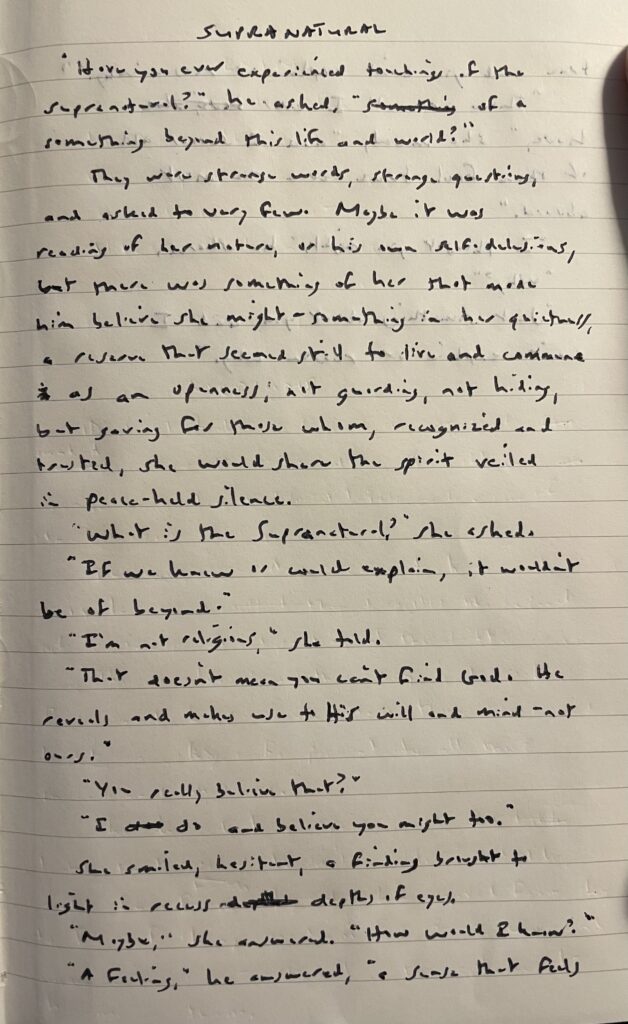 SUPRANATURAL
"Have you ever experienced touchings of the
supranatural?" he asked, "something of a
something beyond this life and world?"
They were strange words, strange questions,
and asked to very few. Maybe it was
reading of her nature, or his own self-delusions,
but there was something of her that made
him believe she might - something in her quietness,
a reserve that seemed still to live and commune
as an openness; not guarding, not hiding,
but saving for those whom, recognized and
trusted, she would share the spirit veiled
in peace-held silence.
"What is the Supranatural?" she asked.
"If we knew or could explain, it wouldn't
be of beyond."
"I'm not religious," she told.
"That doesn't mean you can't find God. He
reveals and makes use to His will and mind - not
ours."
"You really believe that?"
"I do and believe you might too."
She smiled, hesitant, a finding brought to
light in recess depths of eyes.
"Maybe," she answered. "How would I know?"
"A feeling," he answered, "a sense that feels